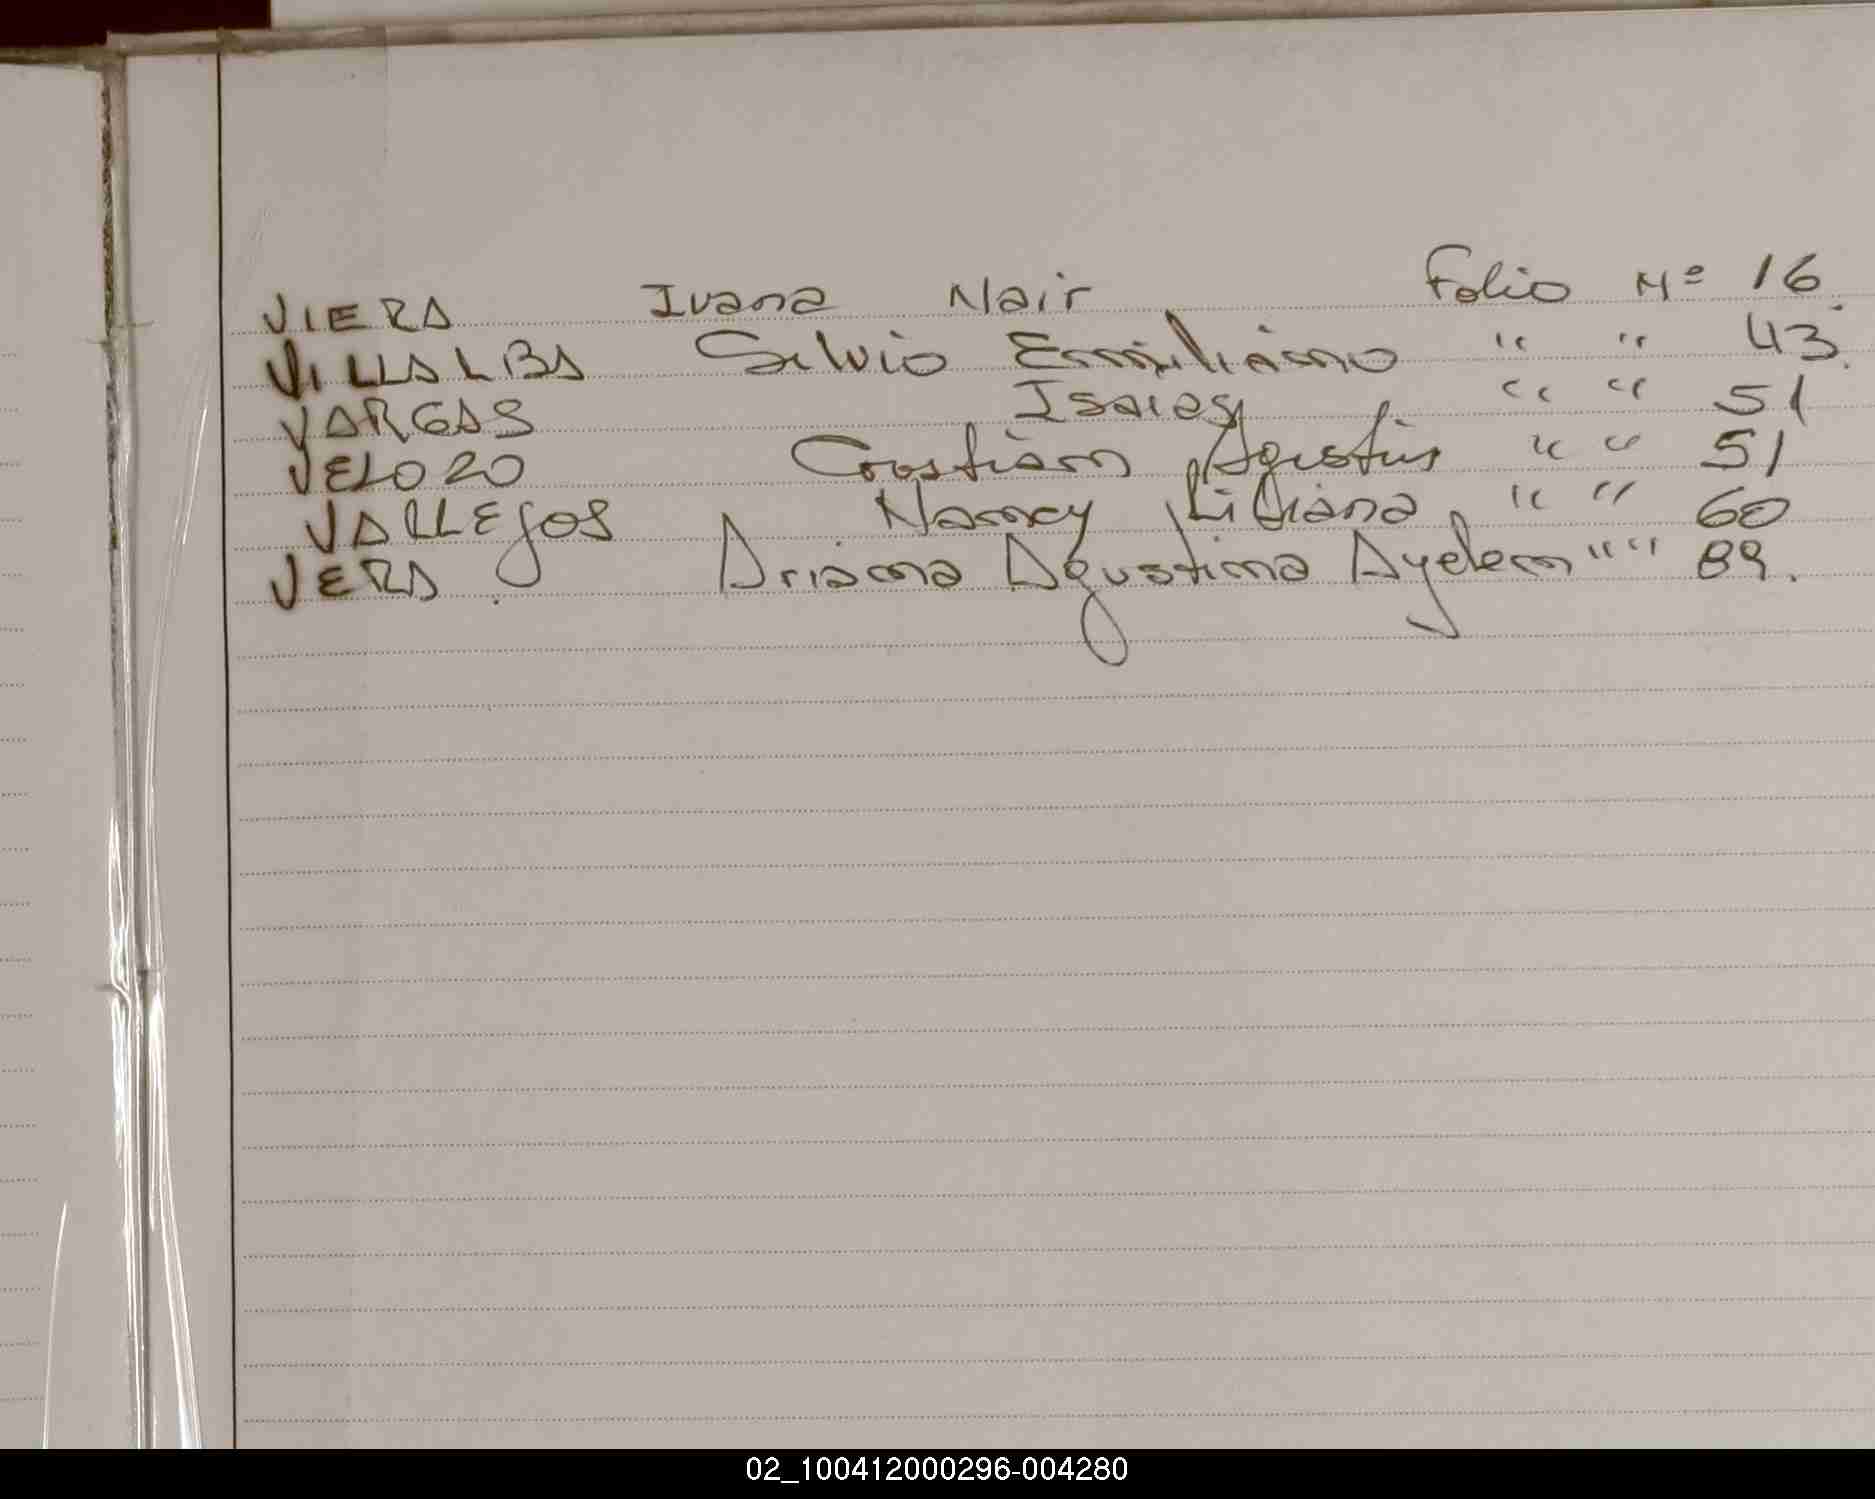 VIERA Ivana Nair Folio Nº 16.
VILLALBA Silvio Emiliano " " 43.
VARGAS Isaias " " 51
VELOZO Cristian Agustin " " 51
VALLEJOS Nancy Liliana " " 60
VERA. Ariana Agustina Ayelen " " 89.
02_100412000296-004280